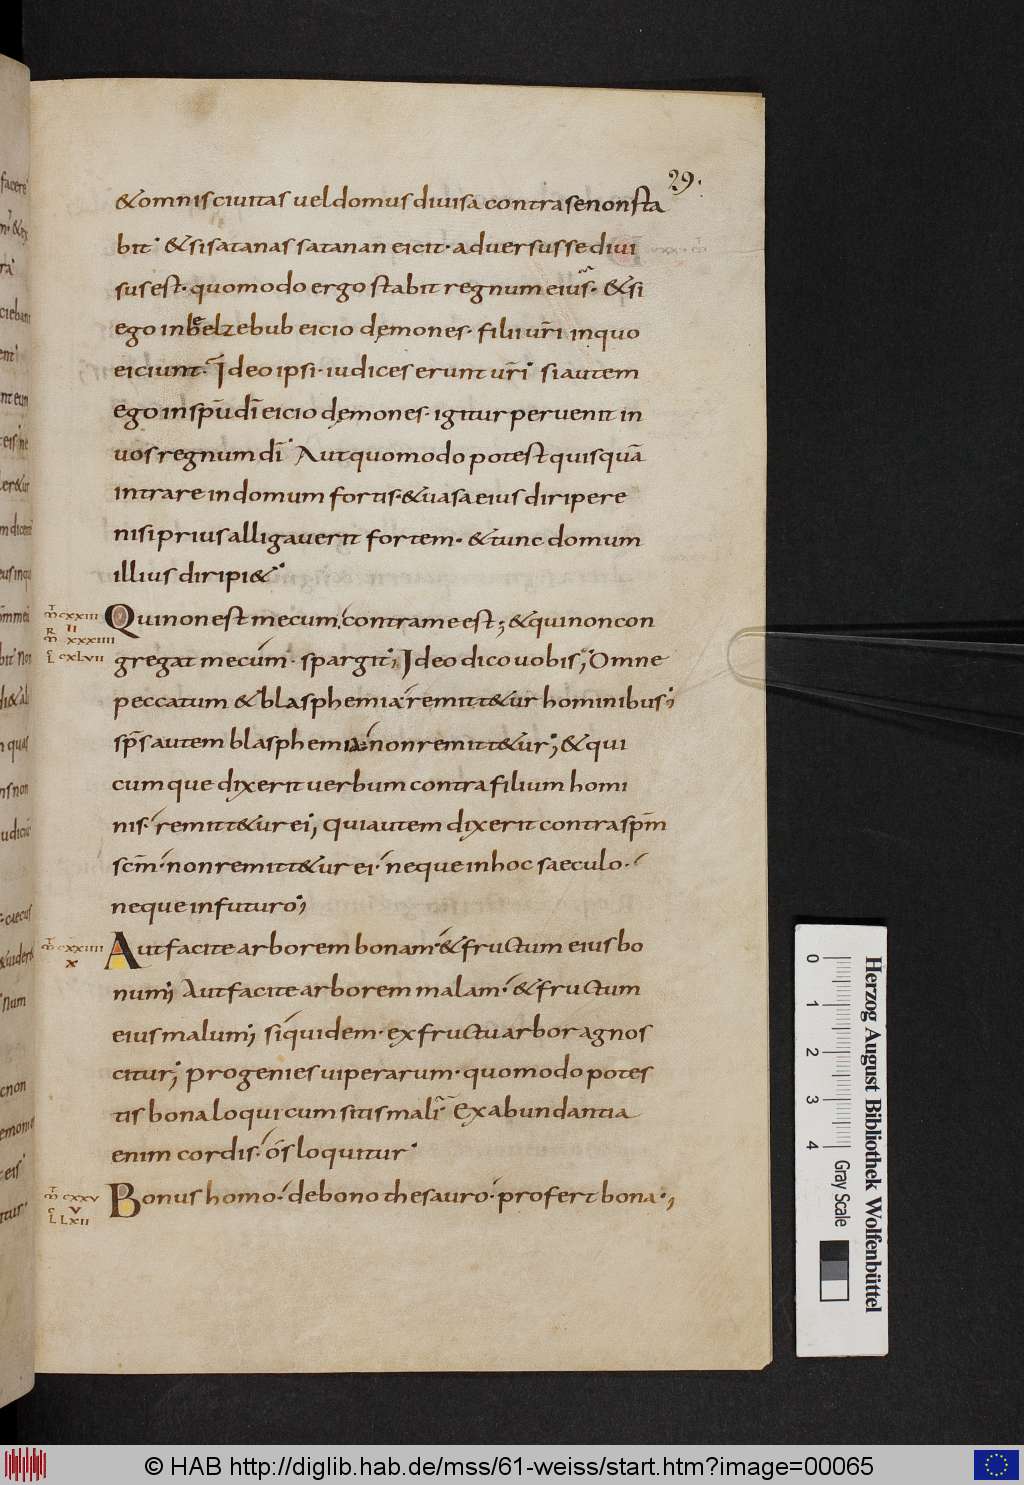 29.
& omnis civitas vel domus divisa contra se non sta
bit· & si satanas satanan eicit· adversus se divi
sus est· quomodo ergo stabit regnum eius· & si
ego in beelzebub eicio dęmones· filii ur̄i in quo
eiciunt· Ideo ipsi· iudices erunt ur̄i· si autem
ego in sp̄u dī eicio dęmones· igitur pervenit in
vos regnum dī· Aut quomodo potest quisquā
intrare in domum fortis· & vasa eius diripere
nisi prius alligaverit fortem· & tunc domum
illius diripi&·
Qui non est mecum· contra me est; & qui non con
gregat mecum· spargit; Ideo dico vobis; Omne
peccatum & blasphemia remitt&ur hominibus;
sp̄s autem blasphemia non remitt&ur; & qui
cumque dixerit verbum contra filium homi
nis· remitt&ur ei; qui autem dixerit contra sp̄m
scm̄· non remitt&ur ei· neque in hoc saeculo·
neque in futuro;
Aut facite arborem bonam· & fructum eius bo
num; Aut facite arborem malam· & fructum
eius malum; siquidem· ex fructu arbor agnos
citur; progenies viperarum· quomodo potes
tis bona loqui cum sitis mali· Ex abundantia
enim cordis· ós loquitur·
Bonus homo· de bono thesauro· profert bona·;
cxxiii
II
xxxiiii
L cxlvii
cxxiiii
x
cxxv
V
L Lxii
Herzog August Bibliothek Wolfenbüttel
0 1 2 3 4 Gray Scale
© HAB http://diglib.hab.de/mss/61-weiss/start.htm?image=00065